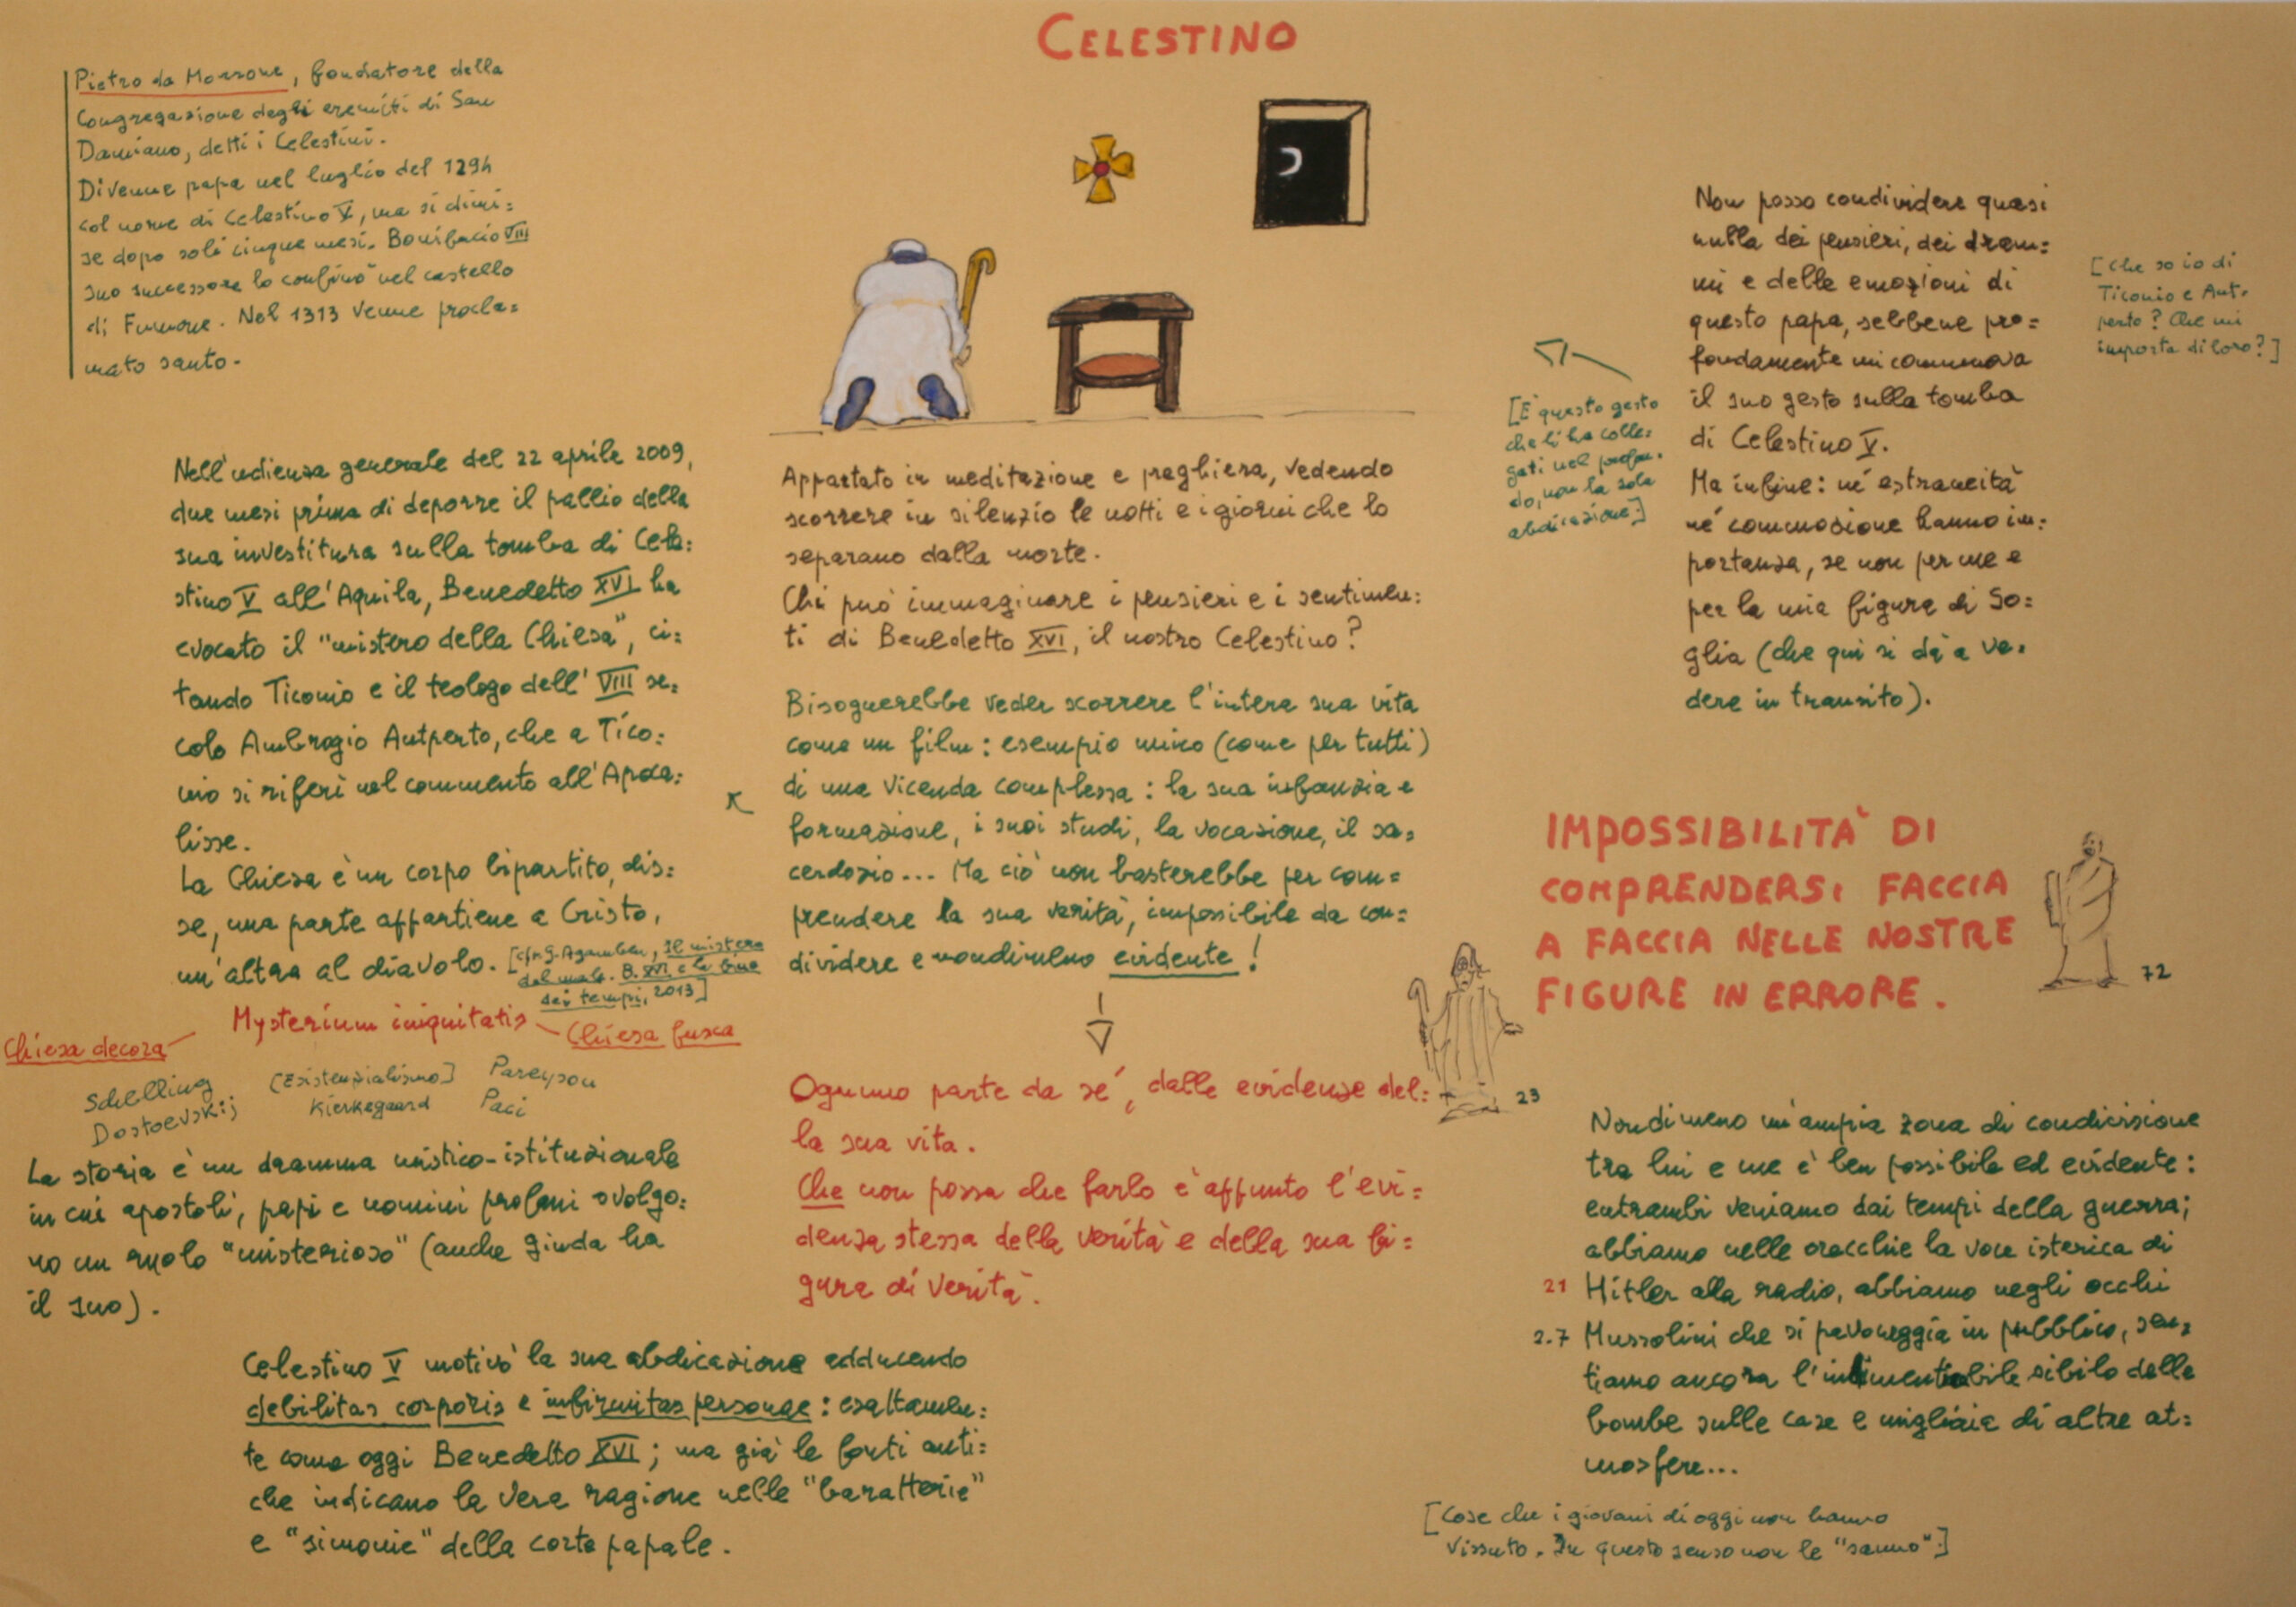 CELESTINO
Pietro da Morrone, fondatore della
Congregazione degli eremiti di San
Damiano, detti i Celestini.
Divenne papa nel luglio del 1294
col nome di Celestino V, ma si dimi=
se dopo soli cinque mesi. Bonifacio VIII
suo successore lo confinò nel castello
di Fumone. Nel 1313 venne procla=
mato santo.
Nell'udienza generale del 22 aprile 2009,
due mesi prima di deporre il pallio della
sua investitura sulla tomba di Cele=
stino V all'Aquila, Benedetto XVI ha
evocato il "mistero della Chiesa", ci=
tando Ticonio e il teologo dell'VIII se=
colo Ambrogio Autperto, che a Tico=
nio si riferì nel commento all'Apoca=
lisse.
La Chiesa è un corpo bipartito, dis=
se, una parte appartiene a Cristo,
un'altra al diavolo. [cfr. G. Agamben, Il mistero
del male. B. XVI e la fine
dei tempi, 2013]
Mysterium iniquitatis
Chiesa decora
Chiesa fusca
Schelling
Dostoevskij
[Esistenzialismo]
Kierkegaard
Pareyson
Paci
La storia è un dramma mistico-istituzionale
in cui apostoli, papi e uomini profani svolgo=
no un ruolo "misterioso" (anche Giuda ha
il suo).
Celestino V motivò la sua abdicazione adducendo
debilitas corporis e infirmitas personae: esattamen=
te come oggi Benedetto XVI; ma già le fonti anti=
che indicano la vera ragione nelle "baratterie"
e "simonie" della corte papale.
Appartato in meditazione e preghiera, vedendo
scorrere in silenzio le notti e i giorni che lo
separano dalla morte.
Chi può immaginare i pensieri e i sentimen=
ti di Benedetto XVI, il nostro Celestino?
Bisognerebbe veder scorrere l'intera sua vita
come un film: esempio unico (come per tutti)
di una vicenda complessa: la sua infanzia e
formazione, i suoi studi, la vocazione, il sa=
cerdozio... Ma ciò non basterebbe per com=
prendere la sua verità, impossibile da con=
dividere e nondimeno evidente!
Ognuno parte da sé, dalle evidenze del=
la sua vita.
Che non possa che farlo è appunto l'evi=
denza stessa della verità e della sua fi=
gura di verità.
[E' questo gesto
che li ha colle=
gati nel profon=
do, non la sola
abdicazione.]
Non posso condividere quasi
nulla dei pensieri, dei dram=
mi e delle emozioni di
questo papa, sebbene pro=
fondamente mi commuova
il suo gesto sulla tomba
di Celestino V.
Ma infine: né estraneità
né commozione hanno im=
portanza, se non per me e
per la mia figura di So=
glia (che qui si dà a ve=
dere in transito).
[Che so io di
Ticonio e Aut=
perto? Che mi
importa di loro?]
IMPOSSIBILITÀ DI
COMPRENDERSI FACCIA
A FACCIA NELLE NOSTRE
FIGURE IN ERRORE.
72
23
Nondimeno un'ampia zona di condivisione
tra lui e me è ben possibile ed evidente:
entrambi veniamo dai tempi della guerra;
abbiamo nelle orecchie la voce isterica di
21 Hitler alla radio, abbiamo negli occhi
2.7 Mussolini che si pavoneggia in pubblico, sen=
tiamo ancora l'indimenticabile sibilo delle
bombe sulle case e migliaia di altre at=
mosfere...
[Cose che i giovani di oggi non hanno
vissuto. In questo senso non le "sanno".]